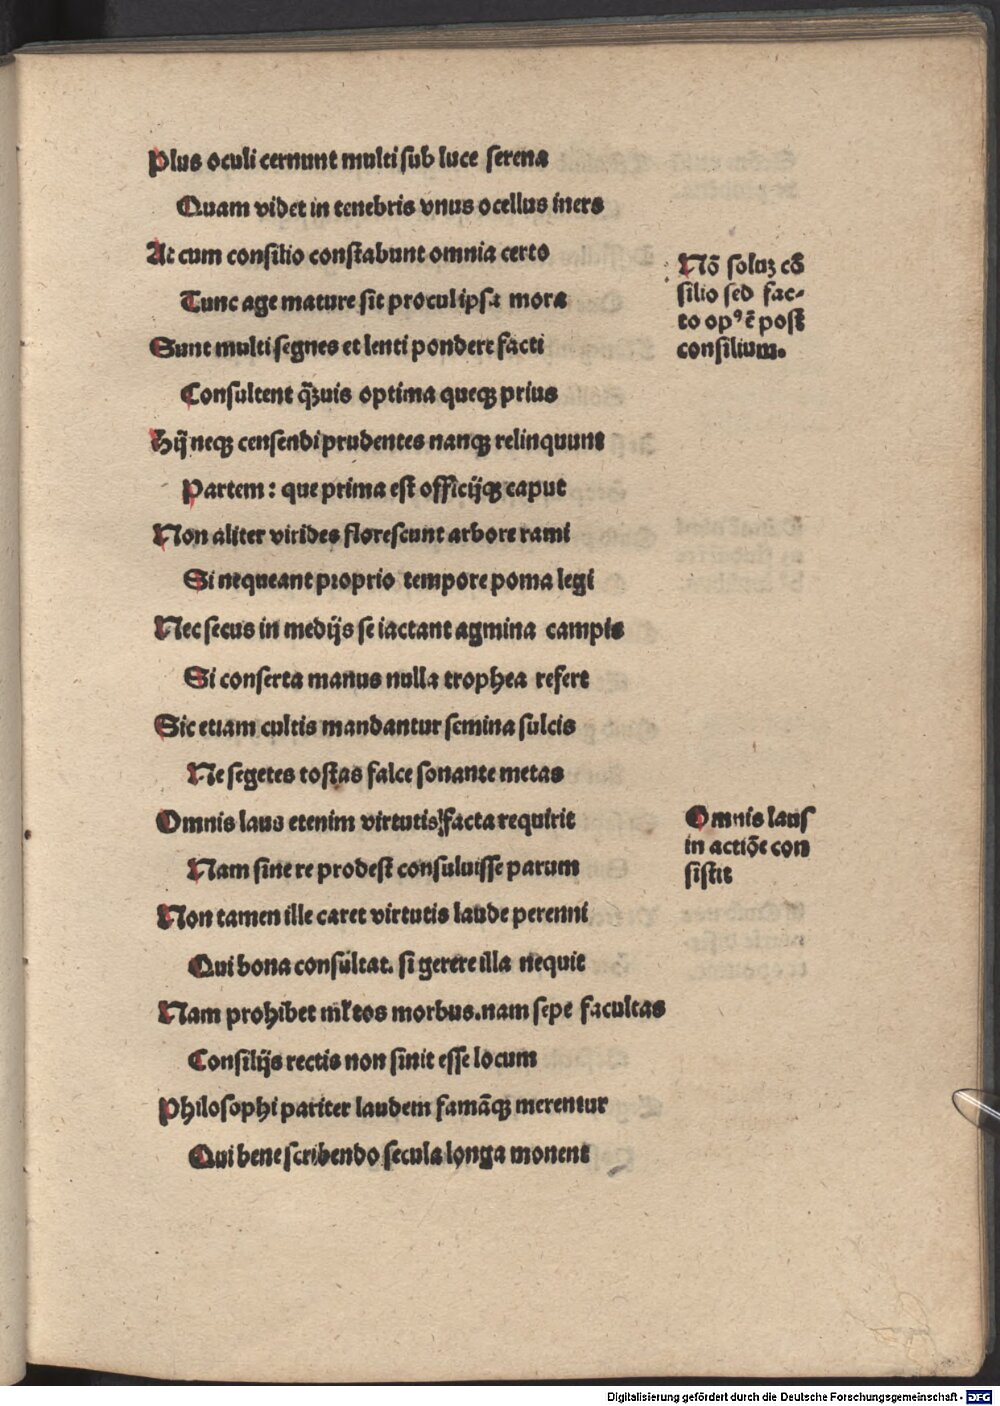 Plus oculi cernunt multi sub luce serena
Quam videt in tenebris vnus ocellus iners
At cum consilio constabunt omnia certo
Tunc age mature sit procul ipsa mora
Sunt multi segnes et lenti pondere facti
Consultent q̄ꝫuis optima queqꝫ prius
Hij neqꝫ censendi prudentes nanqꝫ relinquunt
Partem: que prima est officijqꝫ caput
Non aliter virides florescunt arbore rami
Si nequeant proprio tempore poma legi
Nec secus in medijs se iactant agmina campis
Si conserta manus nulla trophea refert
Sic etiam cultis mandantur semina sulcis
Ne segetes tostas falce sonante metas
Omnis laus etenim virtutis facta requirit
Nam sine re prodest consuluisse parum
Non tamen ille caret virtutis laude perenni
Qui bona consultat. si gerere illa nequit
Nam prohibet ml̄tos morbus. nam sepe facultas
Consilijs rectis non sinit esse locum
Philosophi pariter laudem famāqꝫ merentur
Qui bene scribendo secula longa monent
Nō soluꝫ cō
silio sed fac-
to opꝰ ē post
consilium.
Omnis laus
in actiōe con
sistit
Digitalisierung gefördert durch die Deutsche Forschungsgemeinschaft - DFG